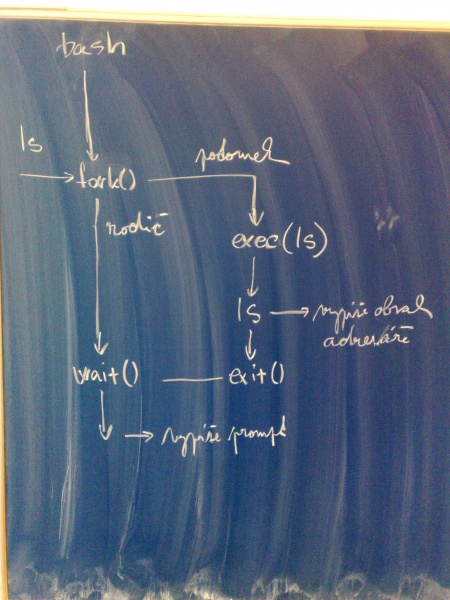 bash
ls
potomek
fork()
rodič
exec(ls)
ls
vypíše obsah
adresáře
wait()
exit()
vypíše prompt